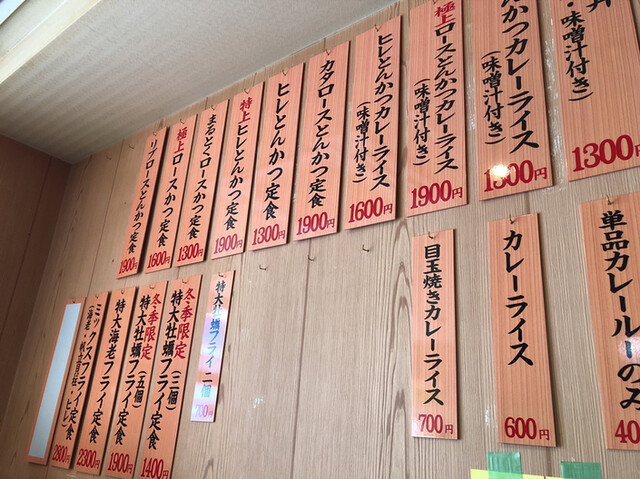 ・味噌汁付き)
1300円
んかつカレーライス
(味噌汁付き)
極上ロースとんかつカレーライス
(味噌汁付き)
1900円
ヒレとんかつカレーライス
(味噌汁付き)
1600円
カタロースとんかつ定食
1900円
ヒレとんかつ定食
1300円
特上ヒレとんかつ定食
1900円
まるとくロースかつ定食
1300円
極上ロースかつ定食
1600円
リブロースとんかつ定食
1900円
単品カレールーのみ
40
カレーライス
600円
目玉焼きカレーライス
700円
特大牡蠣フライ二個
700円
冬季限定
特大牡蠣フライ定食
(三個)
1400円
冬季限定
特大牡蠣フライ定食
(五個)
1900円
特大海老フライ定食
2300円
ミックスフライ定食
(海老・帆立貝柱・ヒレ)
2800円